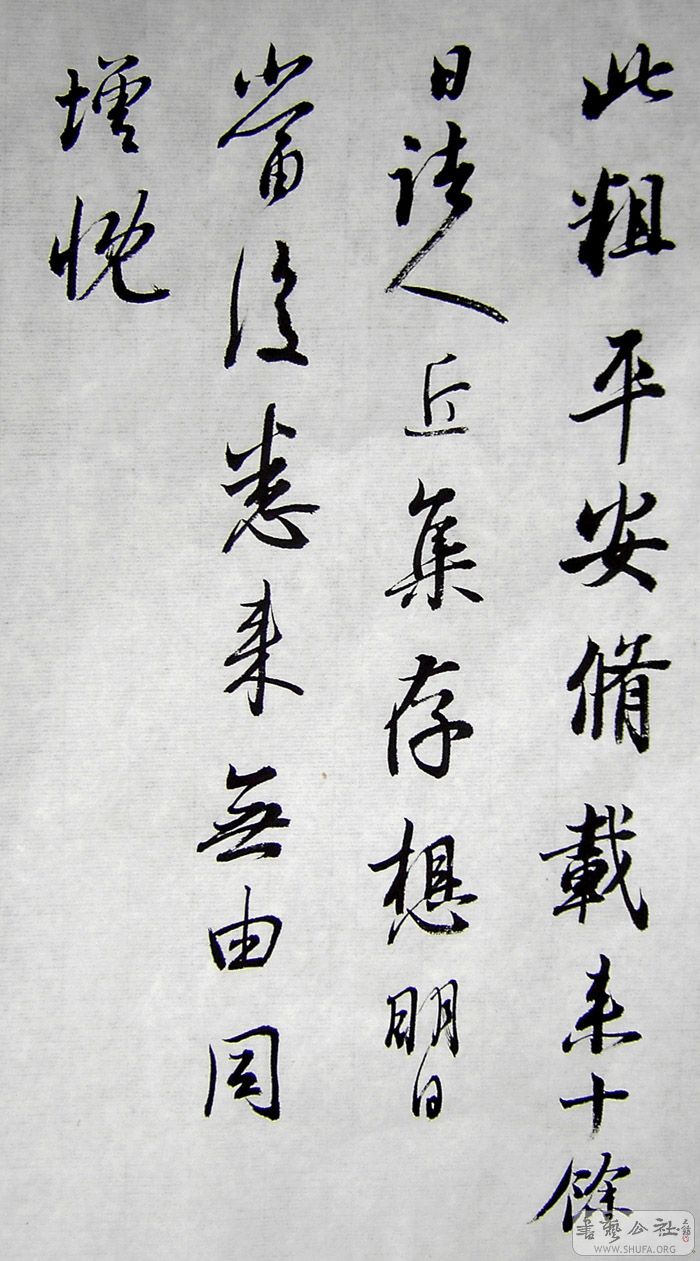 此粗平安脩載来十餘
日諸人近集存想明日
當復悉来無由同
增慨
書藝公社
WWW.SHUFA.ORG